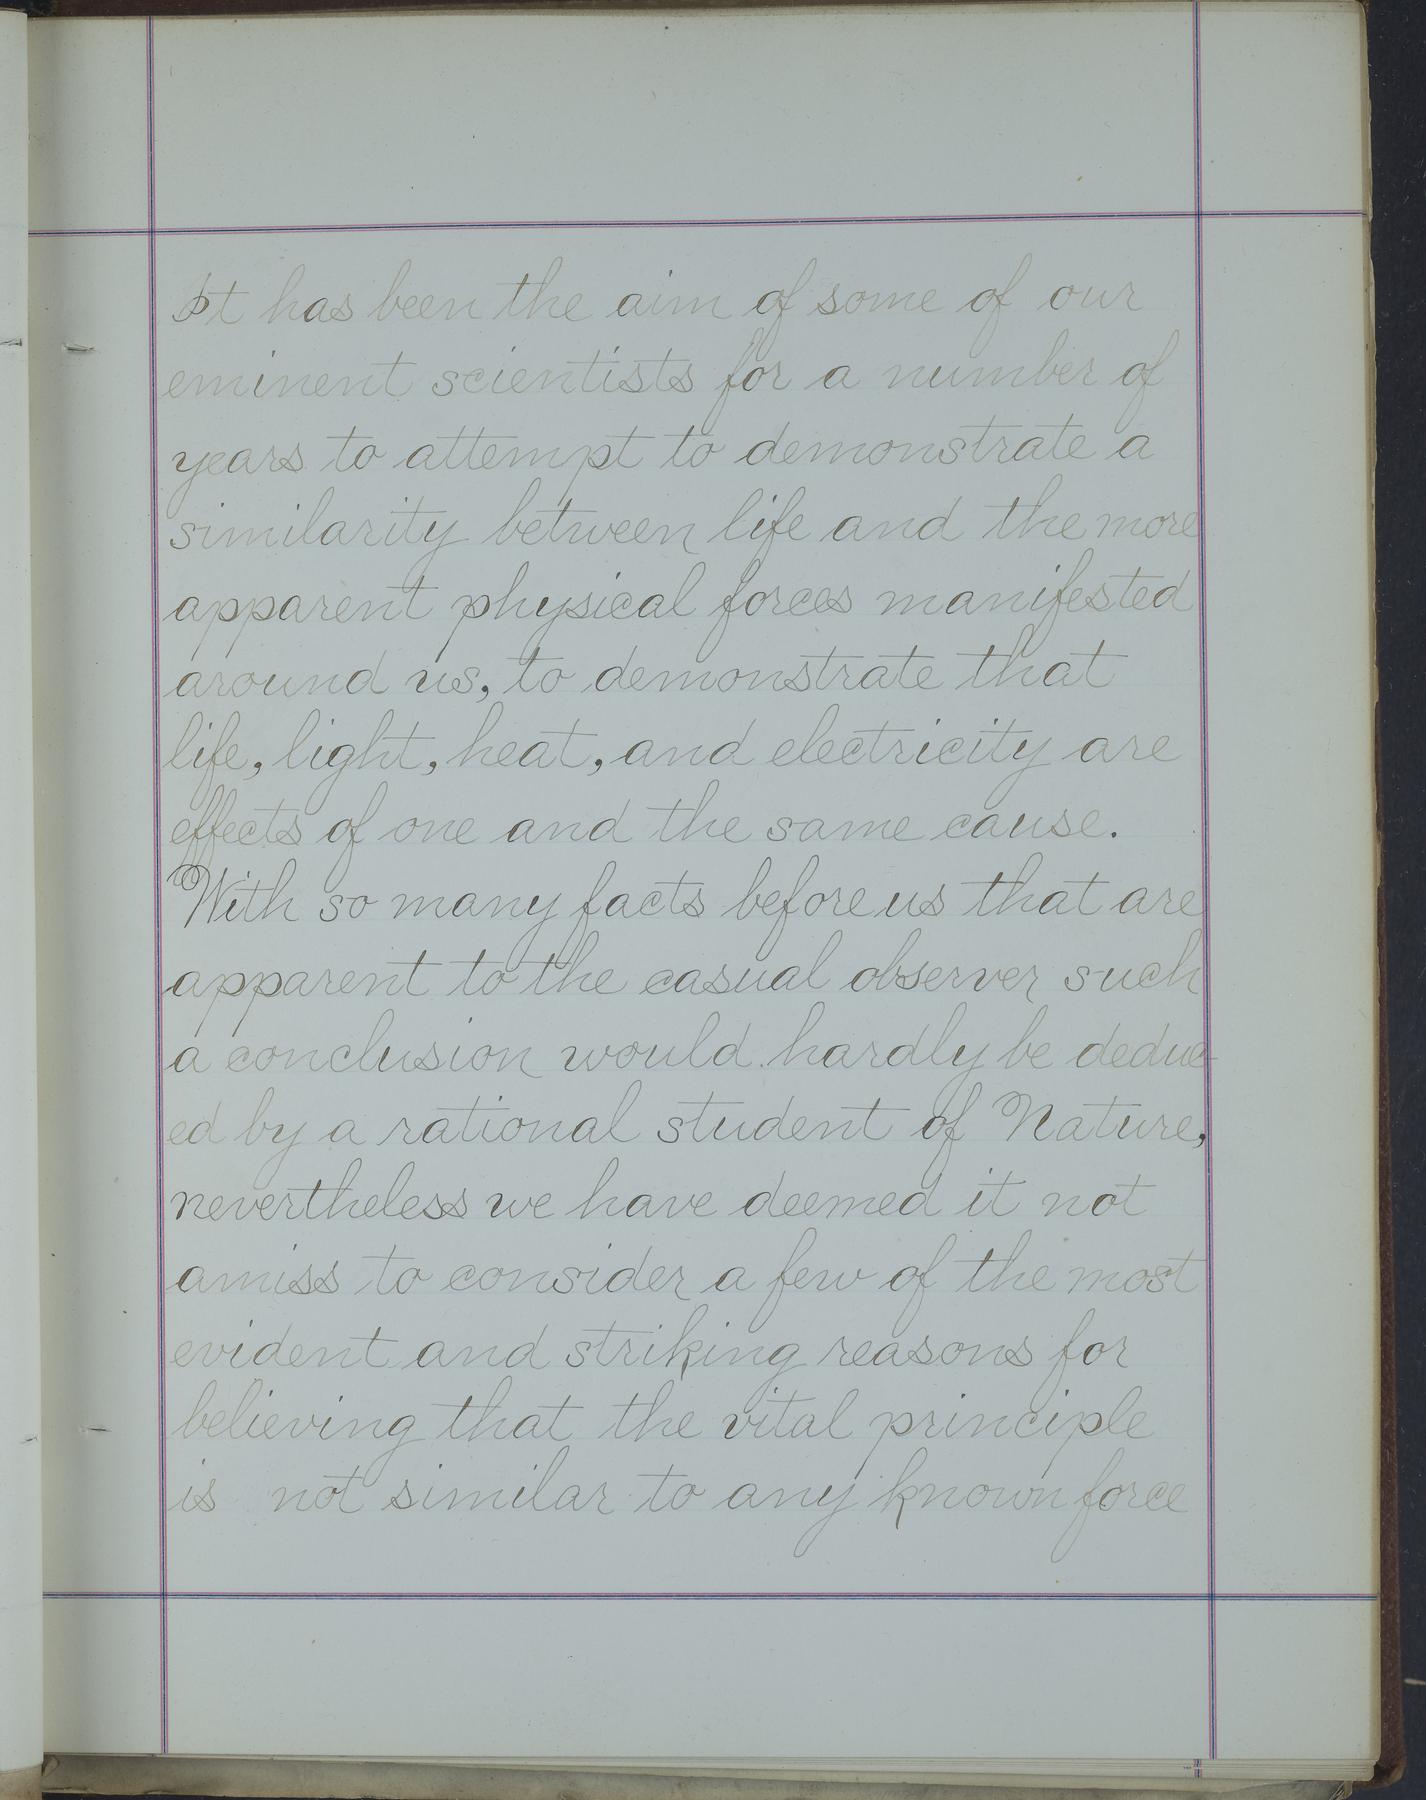 It has been the aim of some of our
eminent scientists for a number of
years to attempt to demonstrate a
similarity between life and the more
apparent physical forces manifested
around us, to demonstrate that
life, light, heat, and electricity are
effects of one and the same cause.
With so many facts before us that are
apparent to the casual observer such
a conclusion would hardly be deduc-
ed by a rational student of Nature,
nevertheless we have deemed it not
amiss to consider a few of the most
evident and striking reasons for
believing that the vital principle
is not similar to any known force